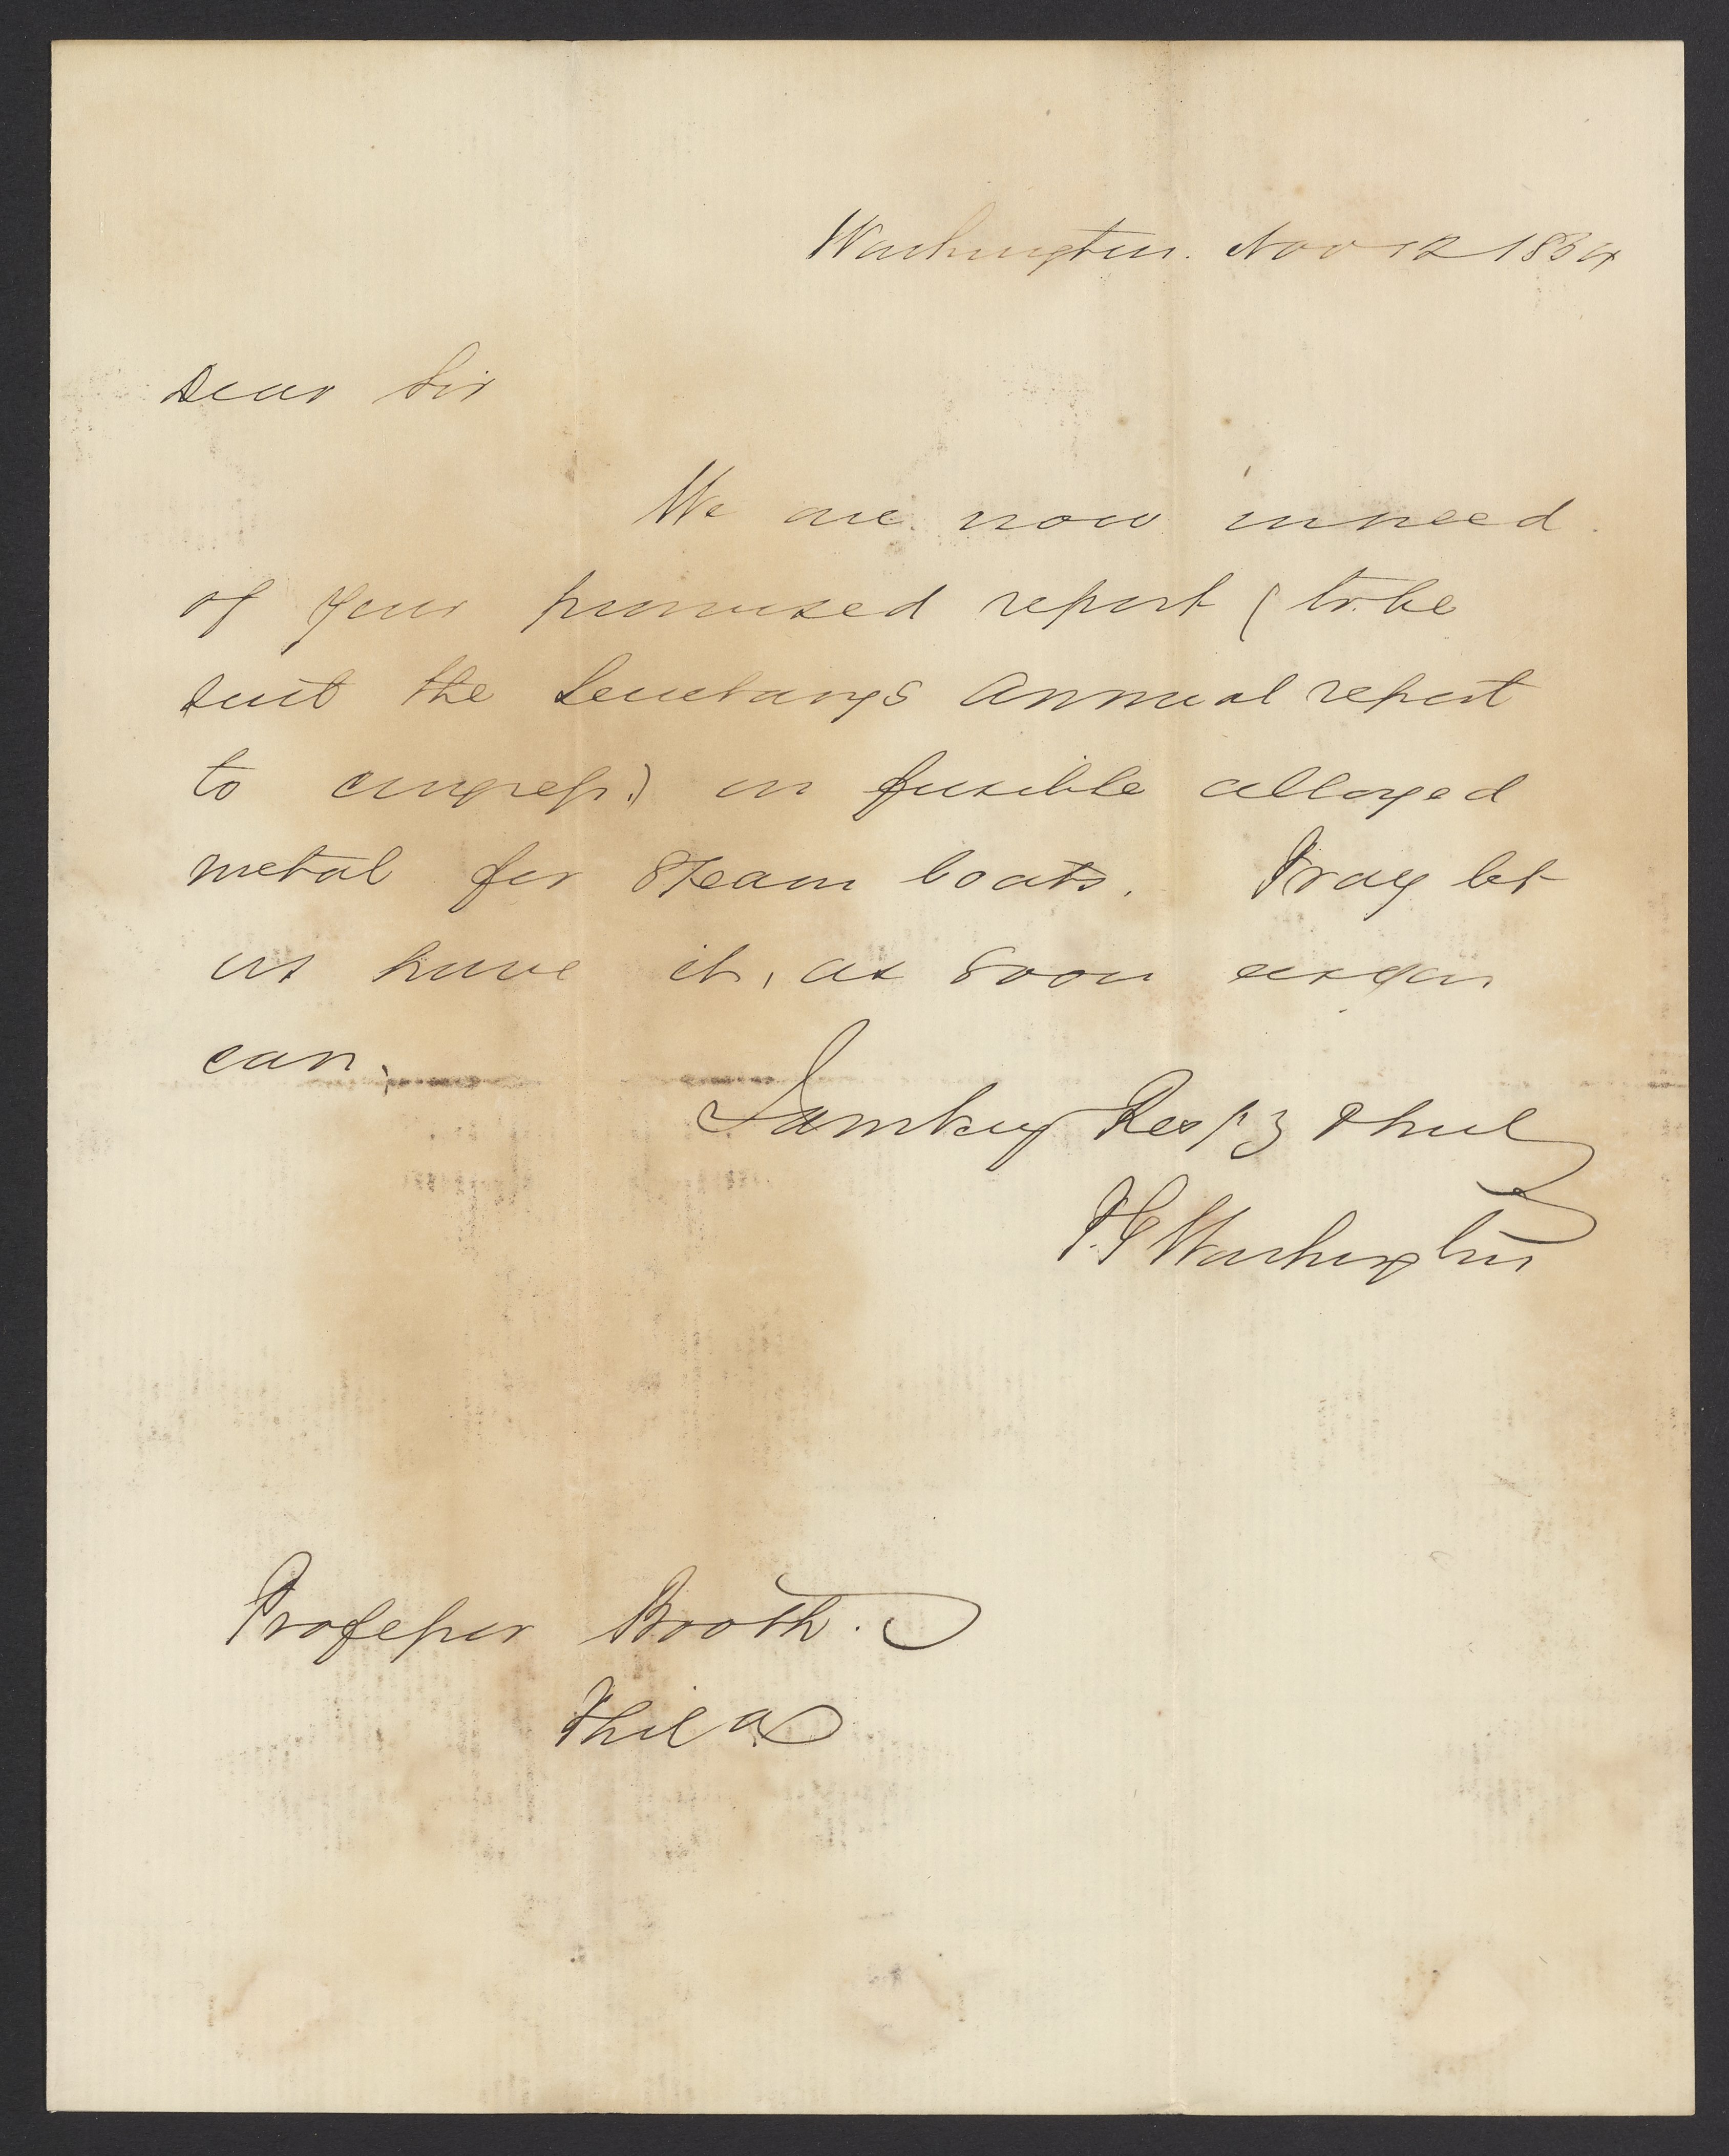 Washington. Nov 12 1854
Dear Sir
We are now in need
of your promised report (to be
suit the Secretarys annual report
to congress.) on fusible alloyed
metal for Steam boats. Pray let
us have it, as soon as you
can.
I am very Resply &
P. G Washington
Professor Booth.
Phila